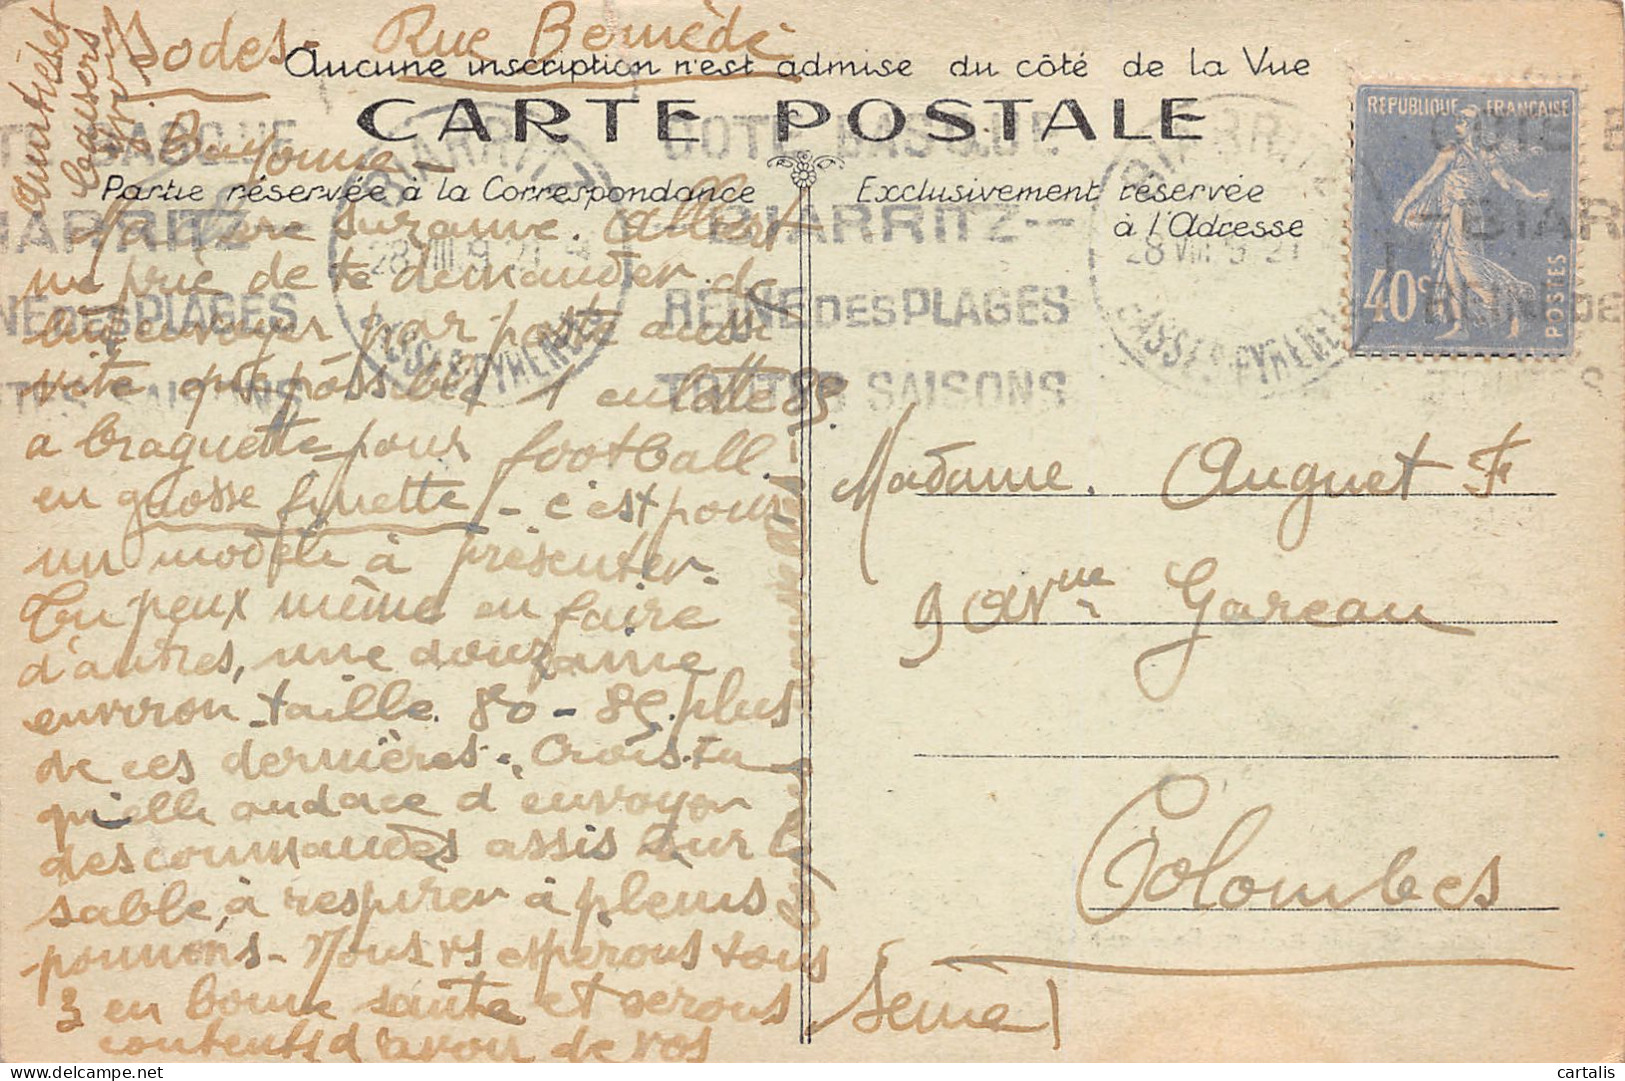 Sodes - Rue Bernède
Aucune inscription n'est admise du côté de la Vue
CARTE POSTALE
Bayonne -
Partie réservée à la Correspondance
Exclusivement réservée
à l'Adresse
REPUBLIQUE FRANÇAISE
40c
POSTES
COTE BASQUE
BIARRITZ
REINE DES PLAGES
TOUTES SAISONS
BIARRITZ
28 VIII
BSSES PYRENEES
Ma chère Suzanne. Albert
me prie de te demander de
lui envoyer par poste aussi
vite que possible 1 culotte 85
a braguette pour football.
en grosse finette - c'est pour
un modèle à présenter.
Tu peux même en faire
d'autres, une douzaine
environ taille 80 - 85 plus
de ces dernières. Crois-tu
qu'elle audace d'envoyer
des commandes assis sur le
sable, à respirer à pleins
poumons - Nous vs esperons tous
3 en bonne santé et serons
contents d'avoir de vos
baisers
Madame. Auguet Fr
9 Avnue Gareau
Colombes
Seine)
cartalis